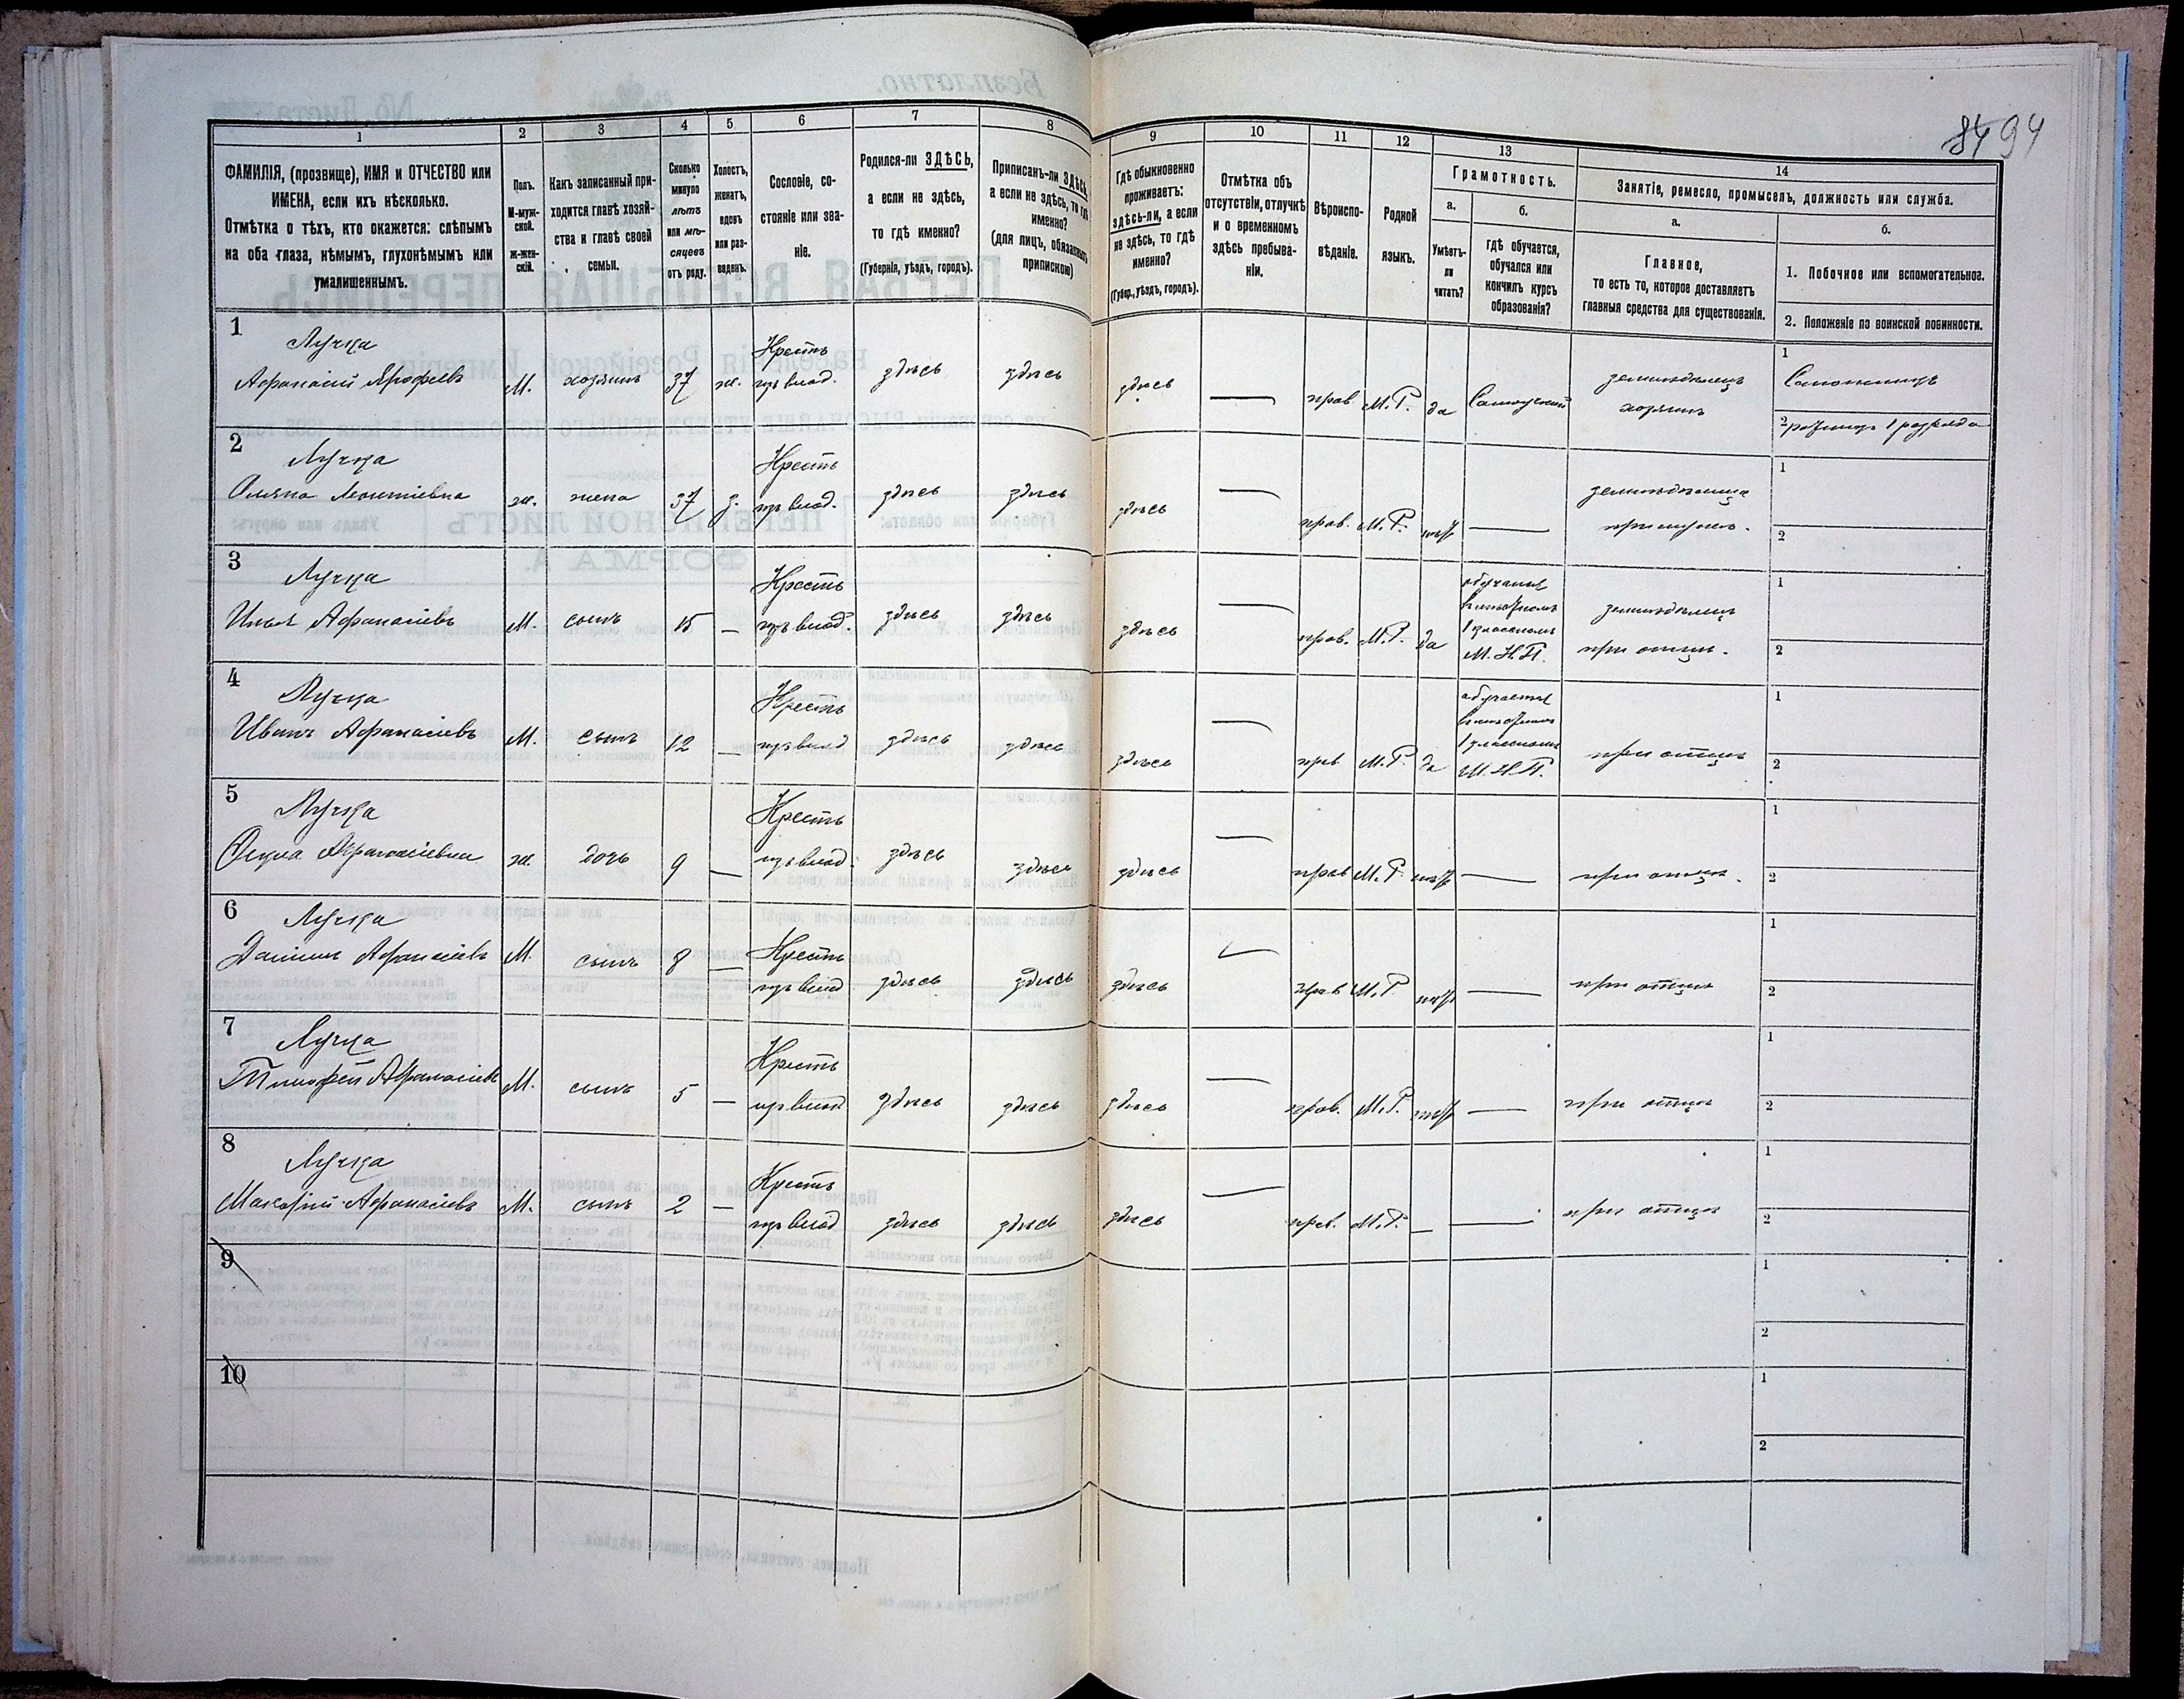 84 94
1
2
3
4
5
6
7
8
9
10
11
12
13
14
ФАМИЛІЯ, (прозвище), ИМЯ и ОТЧЕСТВО или
ИМЕНА, если ихъ нѣсколько.
Отмѣтка о тѣхъ, кто окажется: слѣпымъ
на оба глаза, нѣмымъ, глухонѣмымъ или
умалишеннымъ.
Полъ.
М-муж-
ской.
ж-жен-
скій.
Какъ записанный при-
ходится главѣ хозяй-
ства и главѣ своей
семьи.
Сколько
минуло
лѣтъ
или мѣ-
сяцевъ
отъ роду.
Холостъ,
женатъ,
вдовъ
или раз-
веденъ.
Сословіе, со-
стояніе или зва-
ніе.
Родился-ли ЗДѢСЬ,
а если не здѣсь,
то гдѣ именно?
(Губернія, уѣздъ, городъ).
Приписанъ-ли ЗДѢСЬ,
а если не здѣсь, то гдѣ
именно?
(для лицъ, обязанныхъ
припискою)
Гдѣ обыкновенно
проживаетъ:
здѣсь-ли, а если
не здѣсь, то гдѣ
именно?
(Губер., уѣздъ, городъ).
Отмѣтка объ
отсутствіи, отлучкѣ
и о временномъ
здѣсь пребыва-
ніи.
Вѣроиспо-
вѣданіе.
Родной
языкъ.
Грамотность.
а.
Умѣетъ-
ли
читать?
б.
гдѣ обучается,
обучался или
кончилъ курсъ
образованія?
Занятіе, ремесло, промыселъ, должность или служба.
а.
Главное,
то есть то, которое доставляетъ
главныя средства для существованія.
б.
1. Побочное или вспомогательное.
2. Положеніе по воинской повинности.
1
Лучка
Афанасій Ярофѣевъ
М.
хозяинъ
37
ж.
Крестъ
изъ влад.
здѣсь
здѣсь
здѣсь
—
прав.
М.Р.
да
Самоучкой
земледѣлецъ
хозяинъ
1
2 ратникъ 1 разряда
2
Лучка
Леонтіевна
ж.
жена
37
з.
Крестъ
изъ влад.
здѣсь
здѣсь
здѣсь
—
прав.
М.Р.
нѣтъ
—
при мужѣ.
1
2
3
Лучка
Илья Афанасіевъ
М.
сынъ
15
—
Крестъ
изъ влад.
здѣсь
здѣсь
здѣсь
—
прав.
М.Р.
да
обучался
1 классномъ
М.Н.П.
земледѣлецъ
при отцѣ.
1
2
4
Лучка
Иванъ Афанасіевъ
М.
сынъ
12
—
Крестъ
изъ влад
здѣсь
здѣсь
здѣсь
—
прав
М.Р.
да
обучается
1 классномъ
М.Н.П.
при отцѣ
1
2
5
Лучка
Ѳекла Афанасіевна
ж.
дочь
9
—
Крестъ
изъ влад.
здѣсь
здѣсь
здѣсь
—
прав
М.Р.
нѣтъ
—
при отцѣ.
1
2
6
Лучка
Даніилъ Афанасіевъ
М.
сынъ
8
—
Крестъ
изъ влад
здѣсь
здѣсь
здѣсь
—
прав
М.Р.
нѣтъ
—
при отцѣ
1
2
7
Лучка
Тимофей Афанасіевъ
М.
сынъ
5
—
Крестъ
изъ влад
здѣсь
здѣсь
здѣсь
—
прав.
М.Р.
нѣтъ
—
при отцѣ
1
2
8
Лучка
Макарій Афанасіевъ
М.
сынъ
2
—
Крестъ
изъ влад
здѣсь
здѣсь
здѣсь
—
прав.
М.Р.
—
—
при отцѣ
1
2
9
1
2
10
1
2